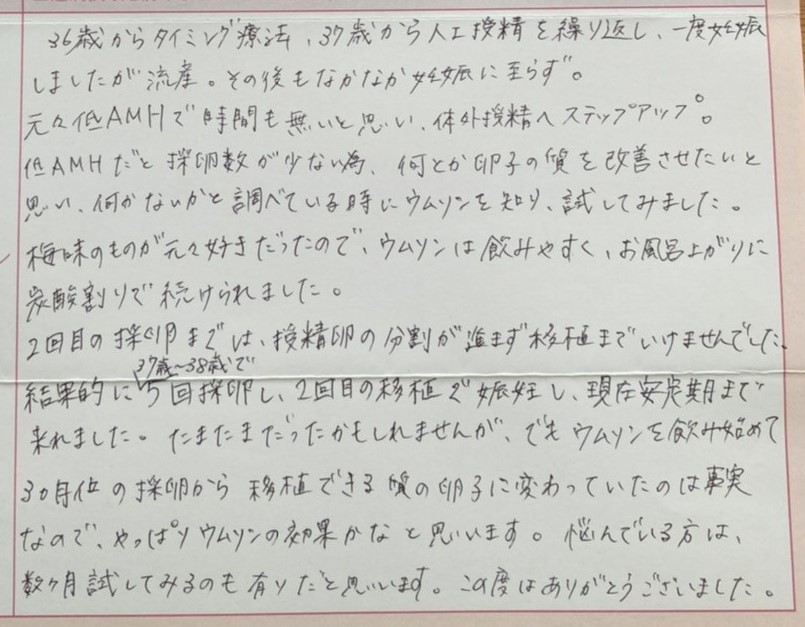 36歳からタイミング療法、37歳から人工授精を繰り返し、一度妊娠
しましたが流産。その後もなかなか妊娠に至らず。
元々低AMHで時間も無いと思い、体外授精へステップアップ。
低AMHだと採卵数が少ない為、何とか卵子の質を改善させたいと
思い、何かないかと調べている時にウムリンを知り、試してみました。
梅味のものが元々好きだったので、ウムリンは飲みやすく、お風呂上がりに
炭酸割りで続けられました。
2回目の採卵までは、授精卵の分割が進まず移植までいけませんでした。
37歳~38歳で
結果的に5回採卵し、2回目の移植で妊娠し、現在安定期まで
来れました。たまたまだったかもしれませんが、でもウムリンを飲み始めて
3ヵ月位の採卵から移植できる質の卵子に変わっていたのは事実
なので、やっぱりウムリンの効果かなと思います。悩んでいる方は、
数ヶ月試してみるのも有りだと思います。この度はありがとうございました。